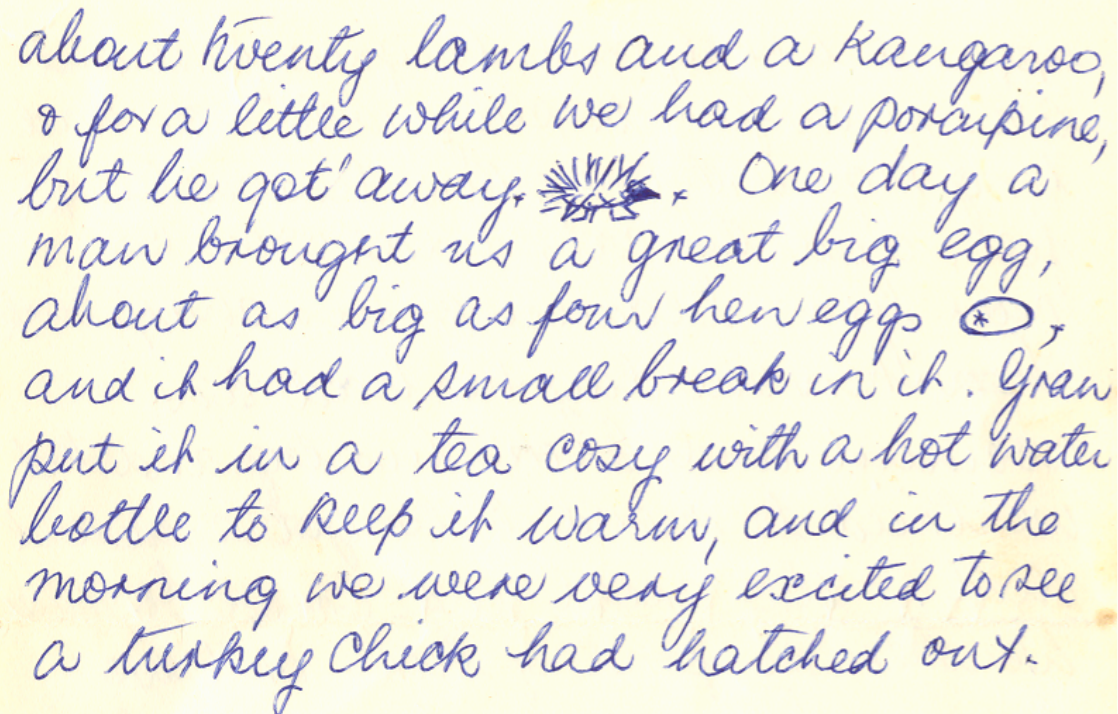 about twenty lambs and a Kangaroo,
& for a little while we had a porcupine,
but he got away. . One day a
man brought us a great big egg,
about as big as four hen eggs ,
and it had a small break in it. Gran
put it in a tea cosy with a hot water
bottle to keep it warm, and in the
morning we were very excited to see
a turkey chick had hatched out.